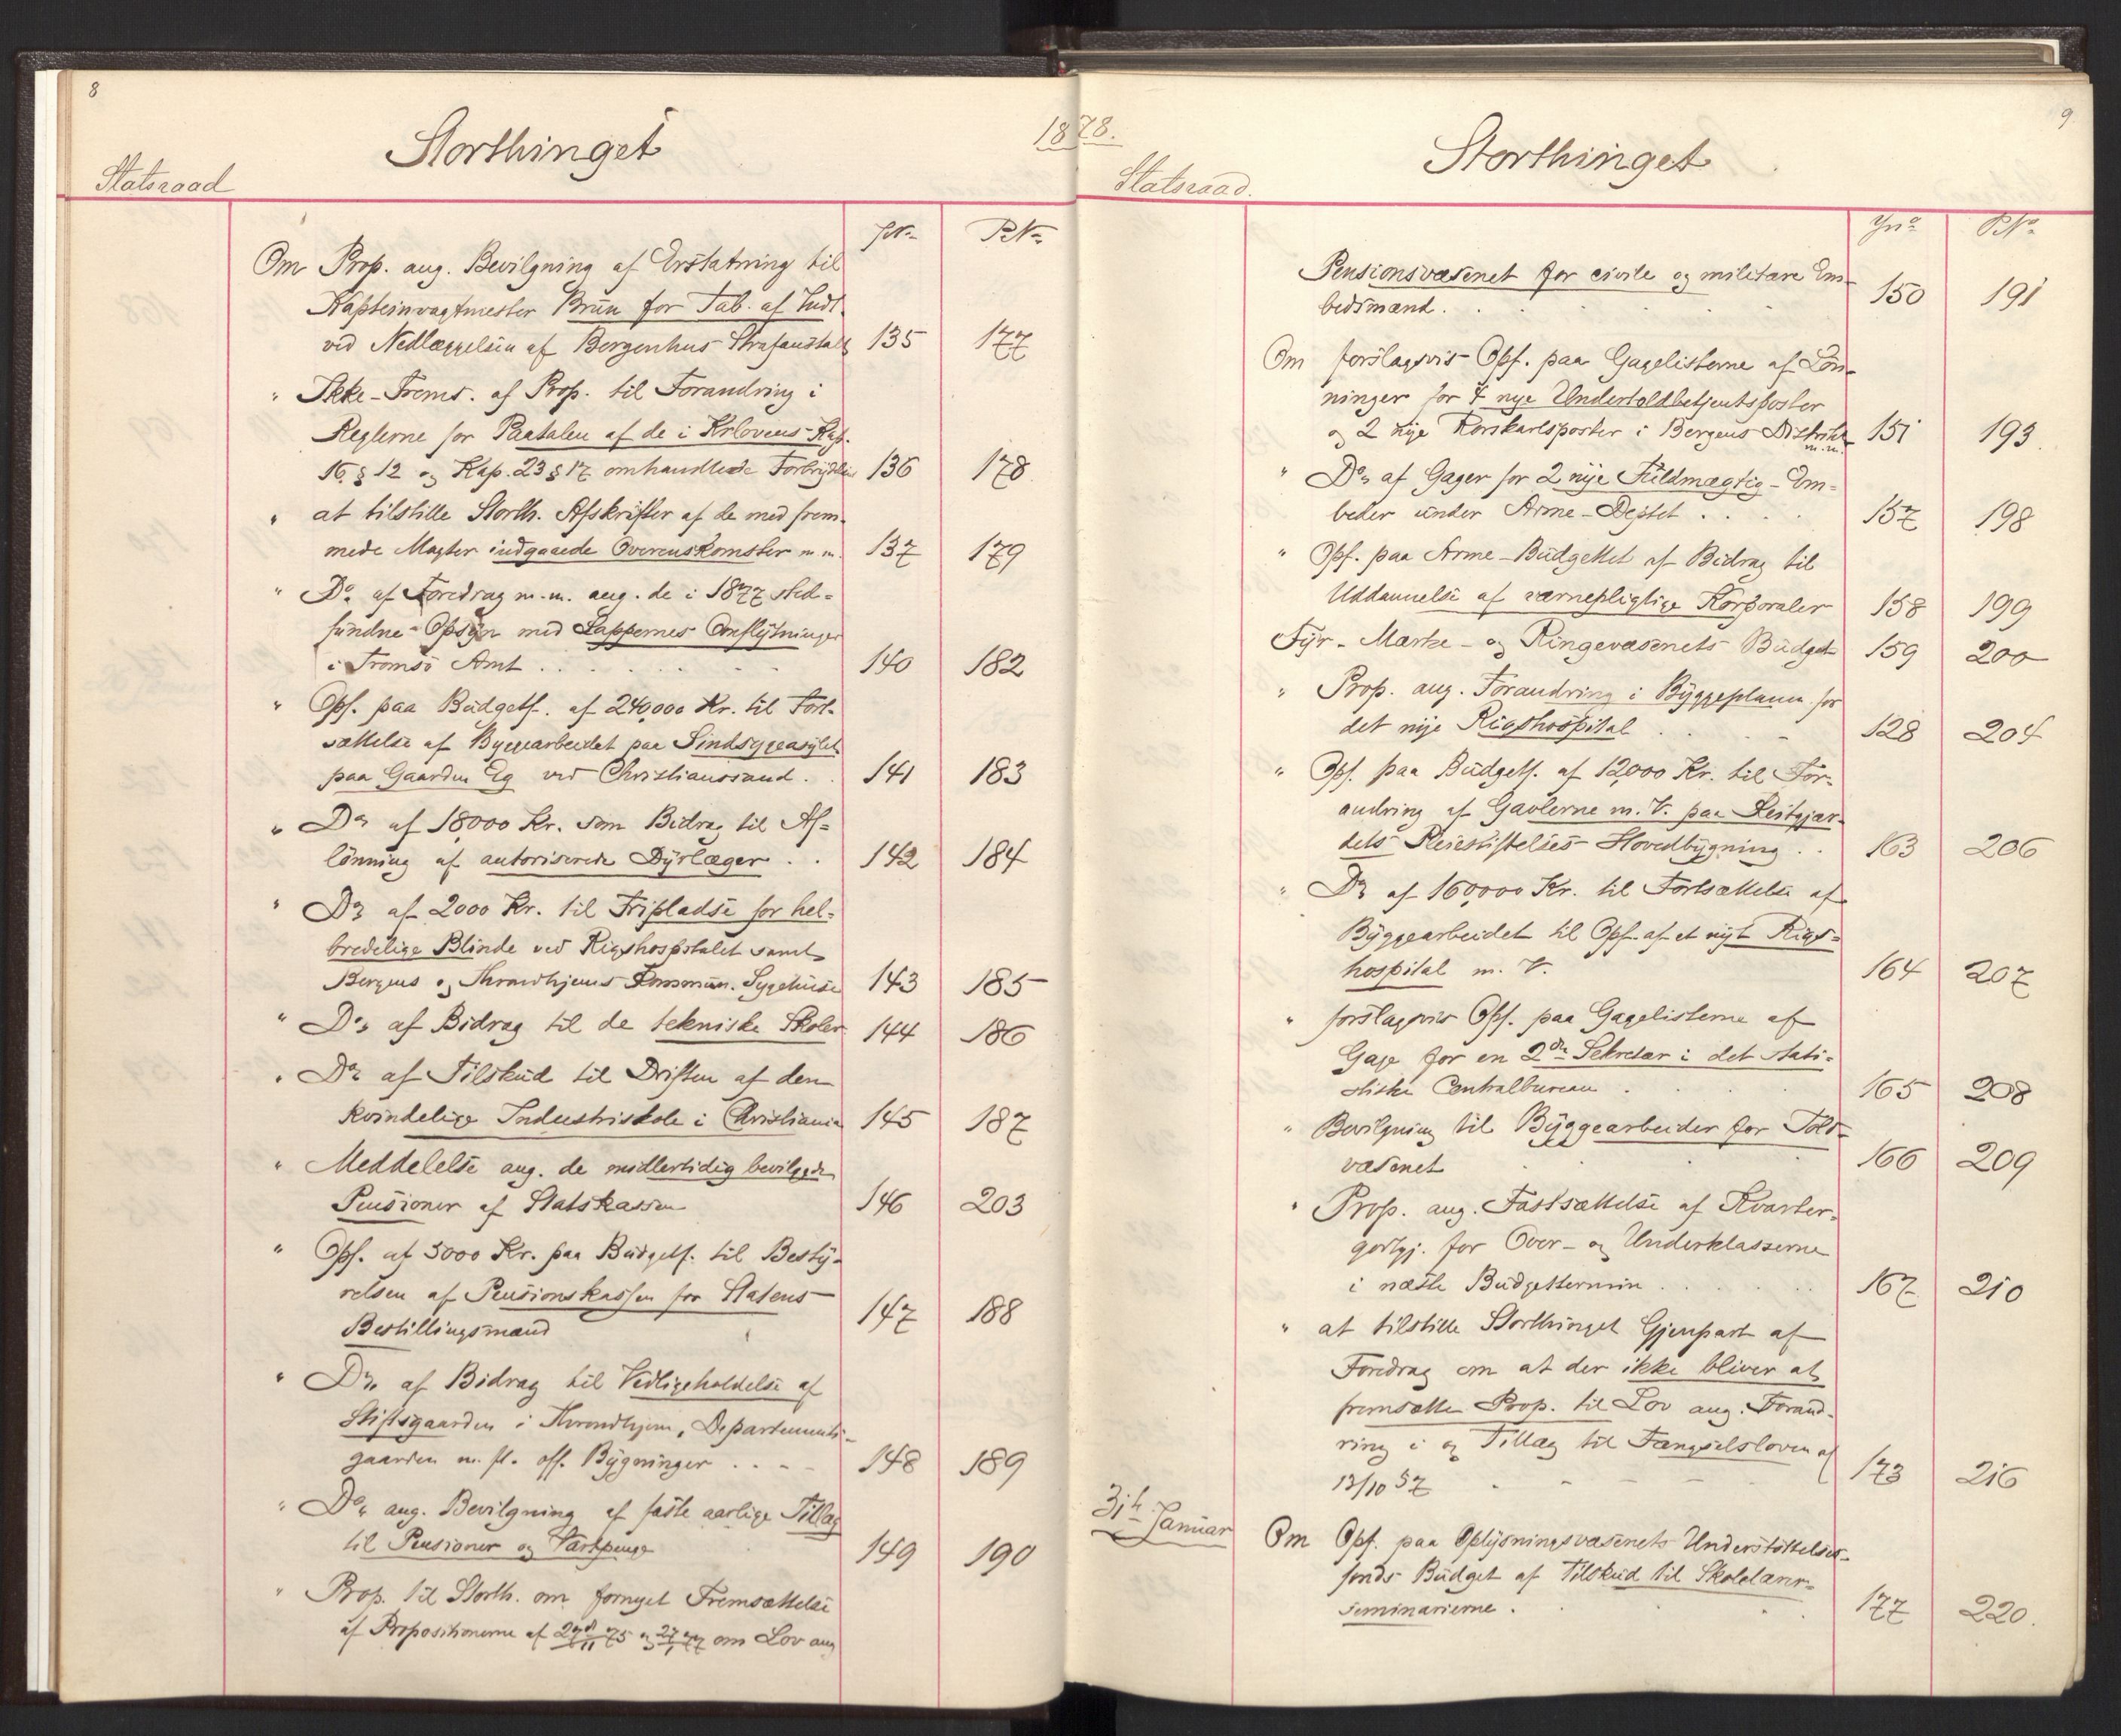 8
Storthinget
1878.
Statsraad
JNo PNo
Om Prop. ang. Bevilgning af Erstatning til
Kapteinvagtmester Brun for Tab af Indt.
ved Nedlæggelsen af Bergenhus Strafanstalt 135 177
" Ikke-Frems. af Prop. til Forandring i
Reglerne for Paatalen af de i Krlovens Kap.
16 § 12 og Kap. 23 § 17 omhandlede Forbrydelser 136 178
" at tilstille Storth. Afskrifter af de med frem-
mede Magter indgaaede Overenskomster m.m. 137 179
" Do. af Foredrag m.m. ang. de i 1877 sted-
fundne Opsyn med Lappernes Omflytninger
i Tromsö Amt . . . . . 140 182
" Opf. paa Budgetf. af 240,000 Kr. til Fort-
sættelse af Byggearbeidet paa Sindsygeasylet
paa Gaarden Eg ved Christianssand . . 141 183
" Do af 18000 Kr. som Bidrag til Af-
lönning af autoriserede Dyrlæger . . 142 184
" Do af 2000 Kr. til Fripladse for hel-
bredelige Blinde ved Rigshospitalet samt
Bergens og Throndhjems Kommun. Sygehuse 143 185
" Do af Bidrag til de tekniske Skoler 144 186
" Do af Tilskud til Driften af den
kvindelige Industriskole i Christiania 145 187
" Meddelelse ang. de midlertidig bevilgede
Pensioner af Statskassen 146 203
" Opf. af 3000 Kr. paa Budgetf. til Besty-
relsen af Pensionskassen for Statens
Bestillingsmænd 147 188
" Do. af Bidrag til Vedligeholdelse af
Stiftsgaarden i Throndhjem, Departements-
gaarden m. fl. off. Bygninger . . . . 148 189
" Do. ang. Bevilgning af faste aarlige Tillæg
til Pensioner og Vartpenge 149 190
" Prop. til Storth. om fornyet Fremsættelse
af Propositionerne af 27/11 75 og 27/1 77 om Lov ang
9
Storthinget
Statsraad.
Jno PNo
Pensionsvæsenet for civile og militære Em-
bedsmænd . . . . . 150 191
Om forslagsvis Opf. paa Gagelisterne af Løn-
ninger for 4 nye Undertoldbetjentsposter
og 2 nye Rorskarlsposter i Bergens Distrikt m.m. 151 193
" Do af Gager for 2 nye Fuldmægtig-Em-
beder under Arme-Deptet . . . 157 198
" Opf. paa Arme-Budgettet af Bidrag til
Uddannelse af værnepligtige Korporaler 158 199
Fyr- Mærke- og Ringevæsenets Budget 159 200
" Prop. ang. Forandring i Byggeplanen for
det nye Rigshospital 128 204
" Opf. paa Budgetf. af 12,000 Kr. til For-
andring af Gavlerne m. V. paa Reitgjær-
dets Pleiestiftelses Hovedbygning . . 163 206
" Do af 160,000 Kr. til Fortsættelse af
Byggearbeidet til Opf. af et nyt Rigs-
hospital m. V. 164 207
" forslagsvis Opf. paa Gagelisterne af
Gage for en 2den Sekretær i det stati-
stiske Centralbureau . . . 165 208
" Bevilgning til Byggearbeider for Told-
væsenet 166 209
" Prop. ang. Fastsættelse af Kvarter-
godtgj. for Over- og Underklasserne
i næste Budgettermin . . . 167 210
" at tilstille Storthinget Gjenpart af
Foredrag om at der ikke bliver at
fremsætte Prop. til Lov ang. Forand-
ring i og Tillæg til Fængselsloven af
13/10 57 . - - - - 173 216
31te Januar
Om Opf. paa Oplysningsvæsenets Understöttelses-
fonds Budget af Tilskud til Skolelærer-
seminarierne . . . 177 220.